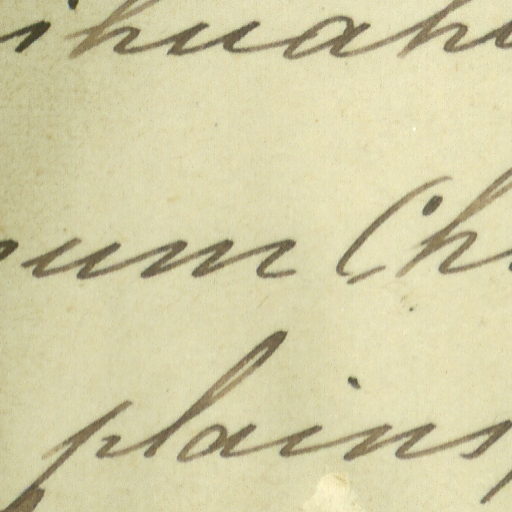 ihuahu
um Chi
plains